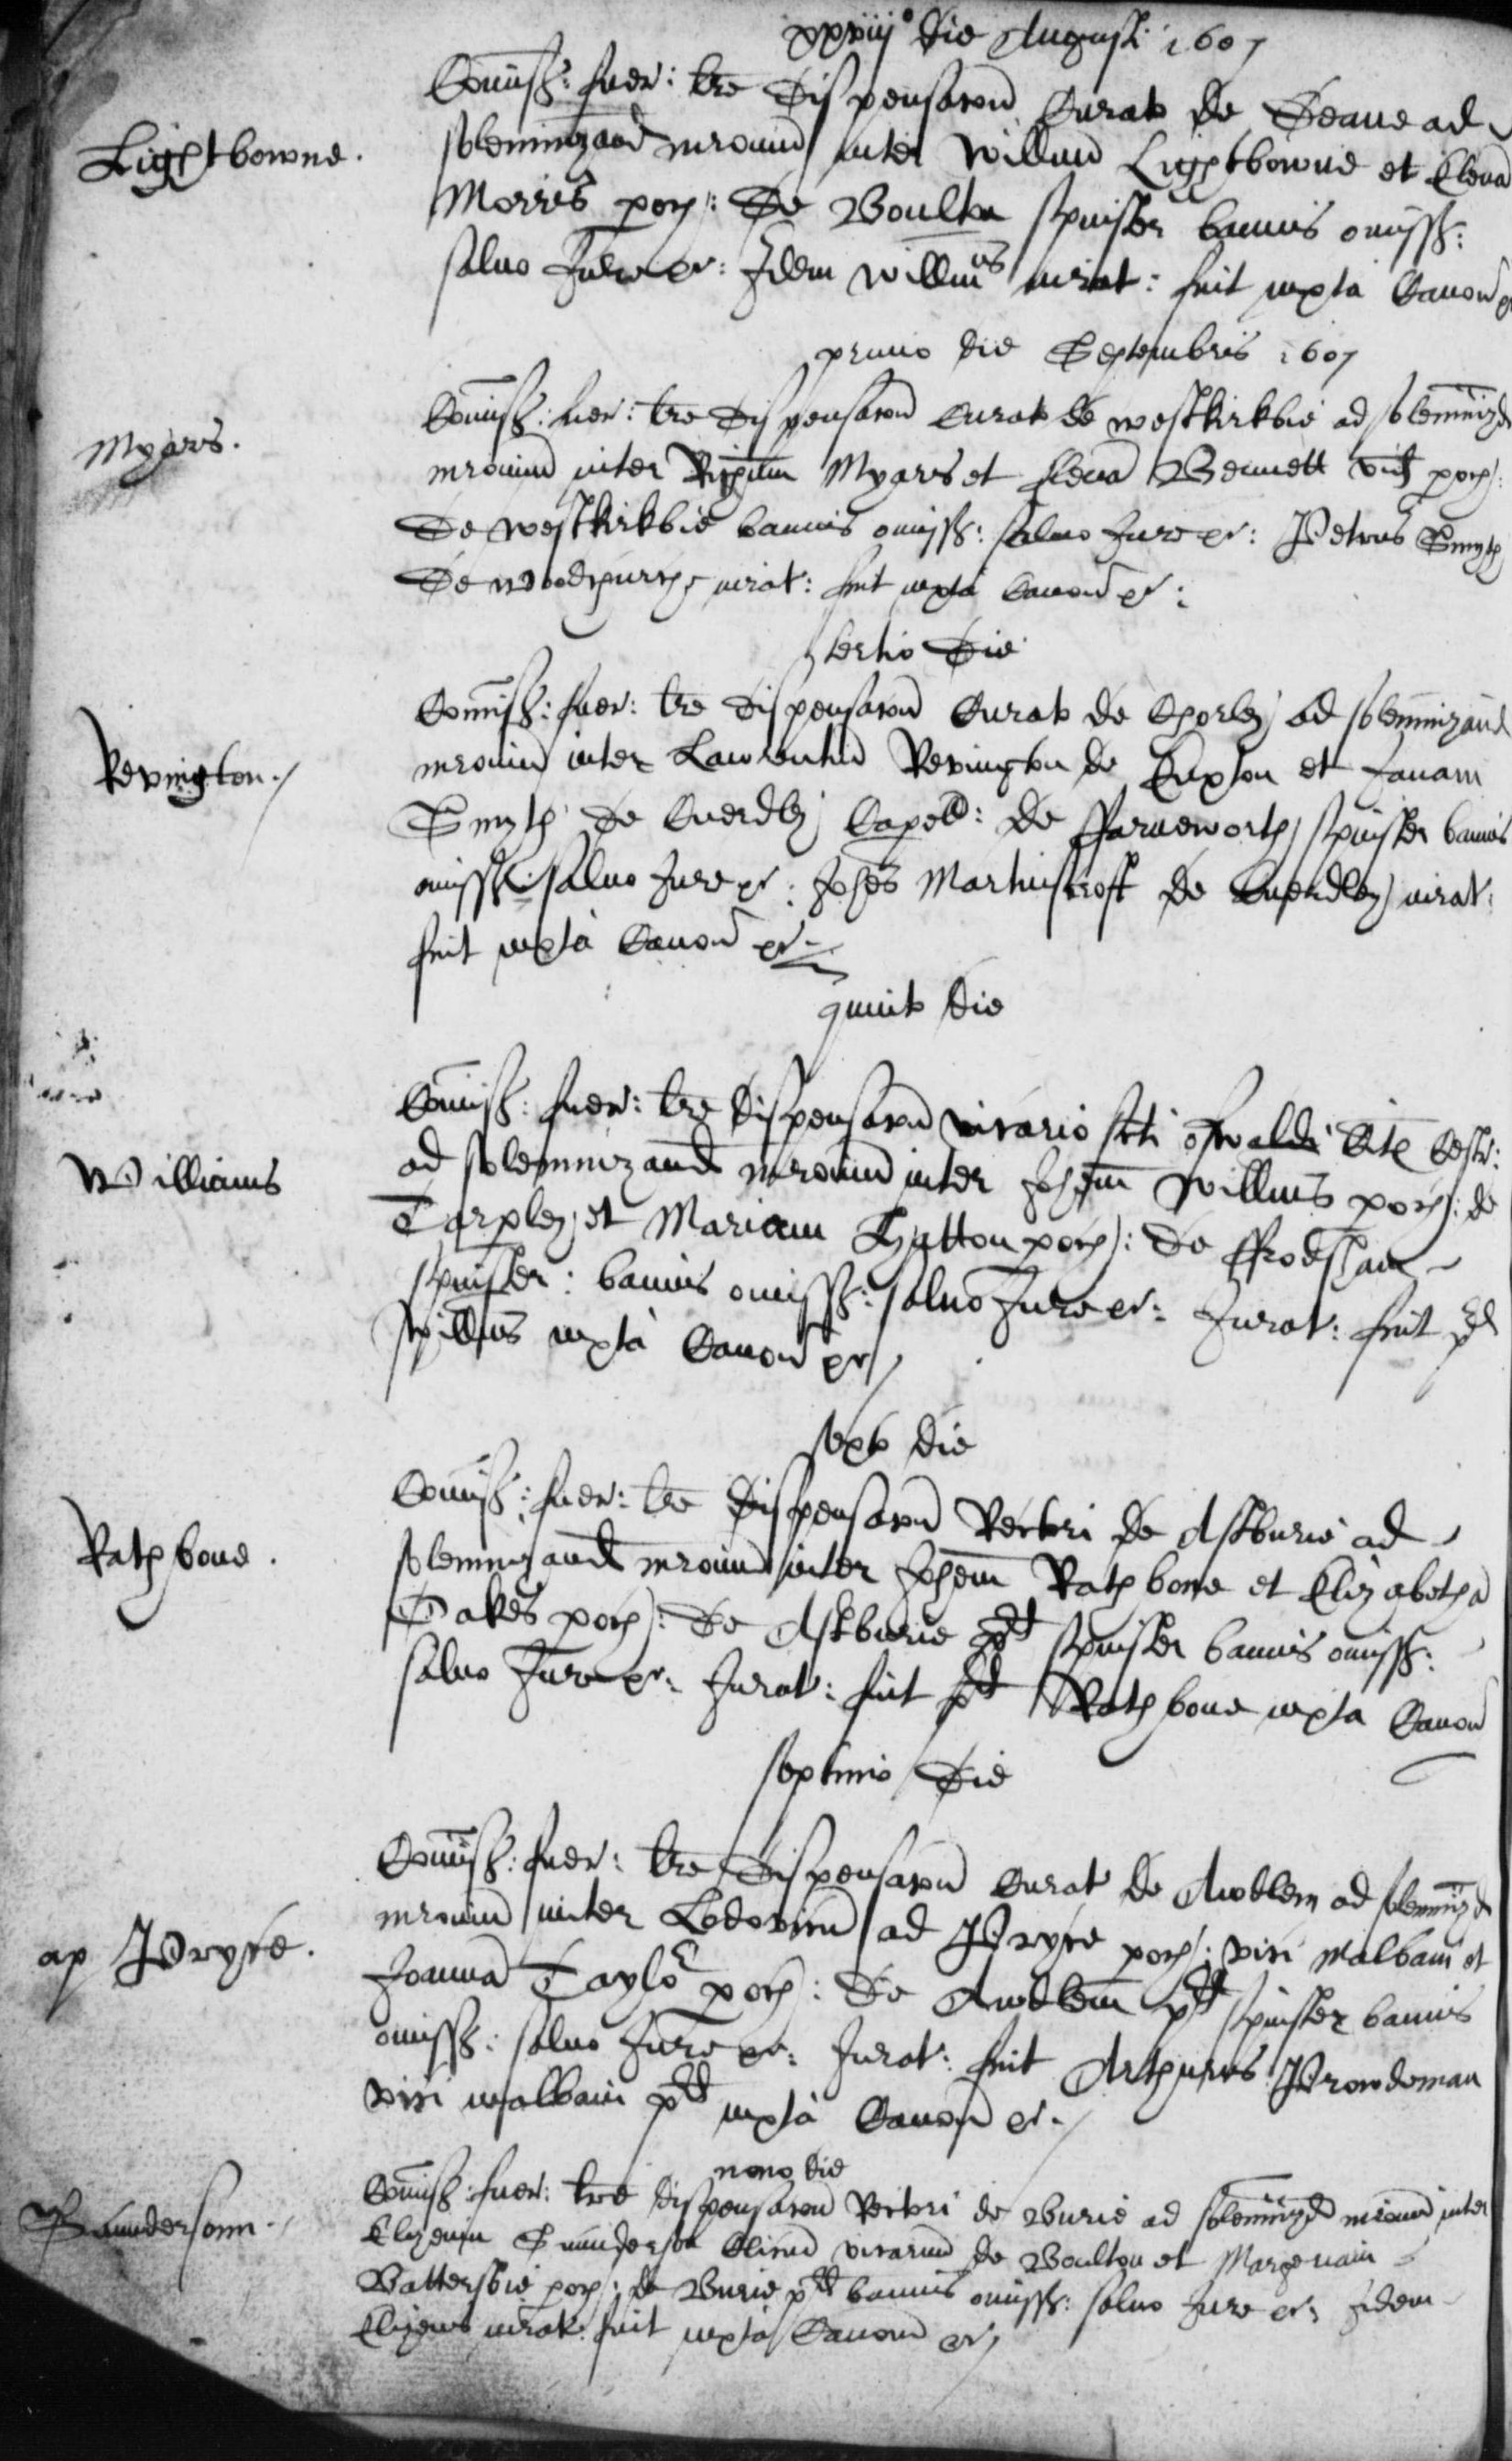 xxviij° die Augusti 1607
Lightbowne.
Comiss: fuer: lre dispensacon Curato de Deane ad
solemnizand mrouiu inter Willmu Lightbowne et Elena
Morris poch: de Boulton spinster bannis omiss:
salvo Jure &c: Idem Willmus iurat: fuit iuxta Canon &c
primo die Septembris 1607
Myars.
Comiss: fuer: lre dispensacon Curato de Westkirkbie ad solemnizd
mroniu inter Myars et Elena Bennett vid poch:
de Westkirkbie bannis omiss: salvo Jure &c: Petrus Smyth
de Woodchurch iurat: fuit iuxta Canon &c:
tertio die
Revington./
Comiss: fuer: lre dispensacon Curato de Chorley ad solemnizand
mroniu inter Lawrentiu Revington de Euxton et Janam
Smyth de Cuerdley Capell: de ffarneworth spinster bannis
omiss: salvo Jure &c: Johes Martinscroft de Cuerdley iurat:
fuit iuxta Canon &c
quinto die
Williams
Comiss: fuer: lre dispensacon vicario scti Oswaldi Cite Cestr:
ad solemnizand mroniu inter Johem Willms poch: de
Tarpley et Mariam Hatton poch: de ffrodsham
spinster: bannis omiss: salvo Jure &c: Jurat: fuit pd
Willms iuxta Canon &c/
sexto die
Rathbone.
Comiss: fuer: lre dispensacon Rectori de Astburie ad
solemnizand mroniu inter Johem Rathbone et Elizabetha
Oakes poch: de Astburie pd spinster bannis omiss:
salvo Jure &c: Jurat: fuit pd Rathbone iuxta Canon
septimo die
ap Pryce.
Comiss: fuer: lre dispensacon Curat de Awdlem ad solemnizd
mroniu inter Lodovicu ad Pryce poch: vici Malbani et
Joanna Taylor poch: de Awdlem pd spinster bannis
omiss: salvo Jure &c: Jurat: fuit Arthurus Prowdeman
vici Malbani pd iuxta Canon &c./
nono die
Saundersonn.
Comiss: fuer: lre dispensacon Rectori de Burie ad solemnizd mroniu inter
Elizeum Saunderson Clicum vicarium de Boulton et Margeriam
Battersbie poch: de Burie pd bannis omiss: salvo Jure &c; Idem
Elizeus iurat: fuit iuxta Canon &c/